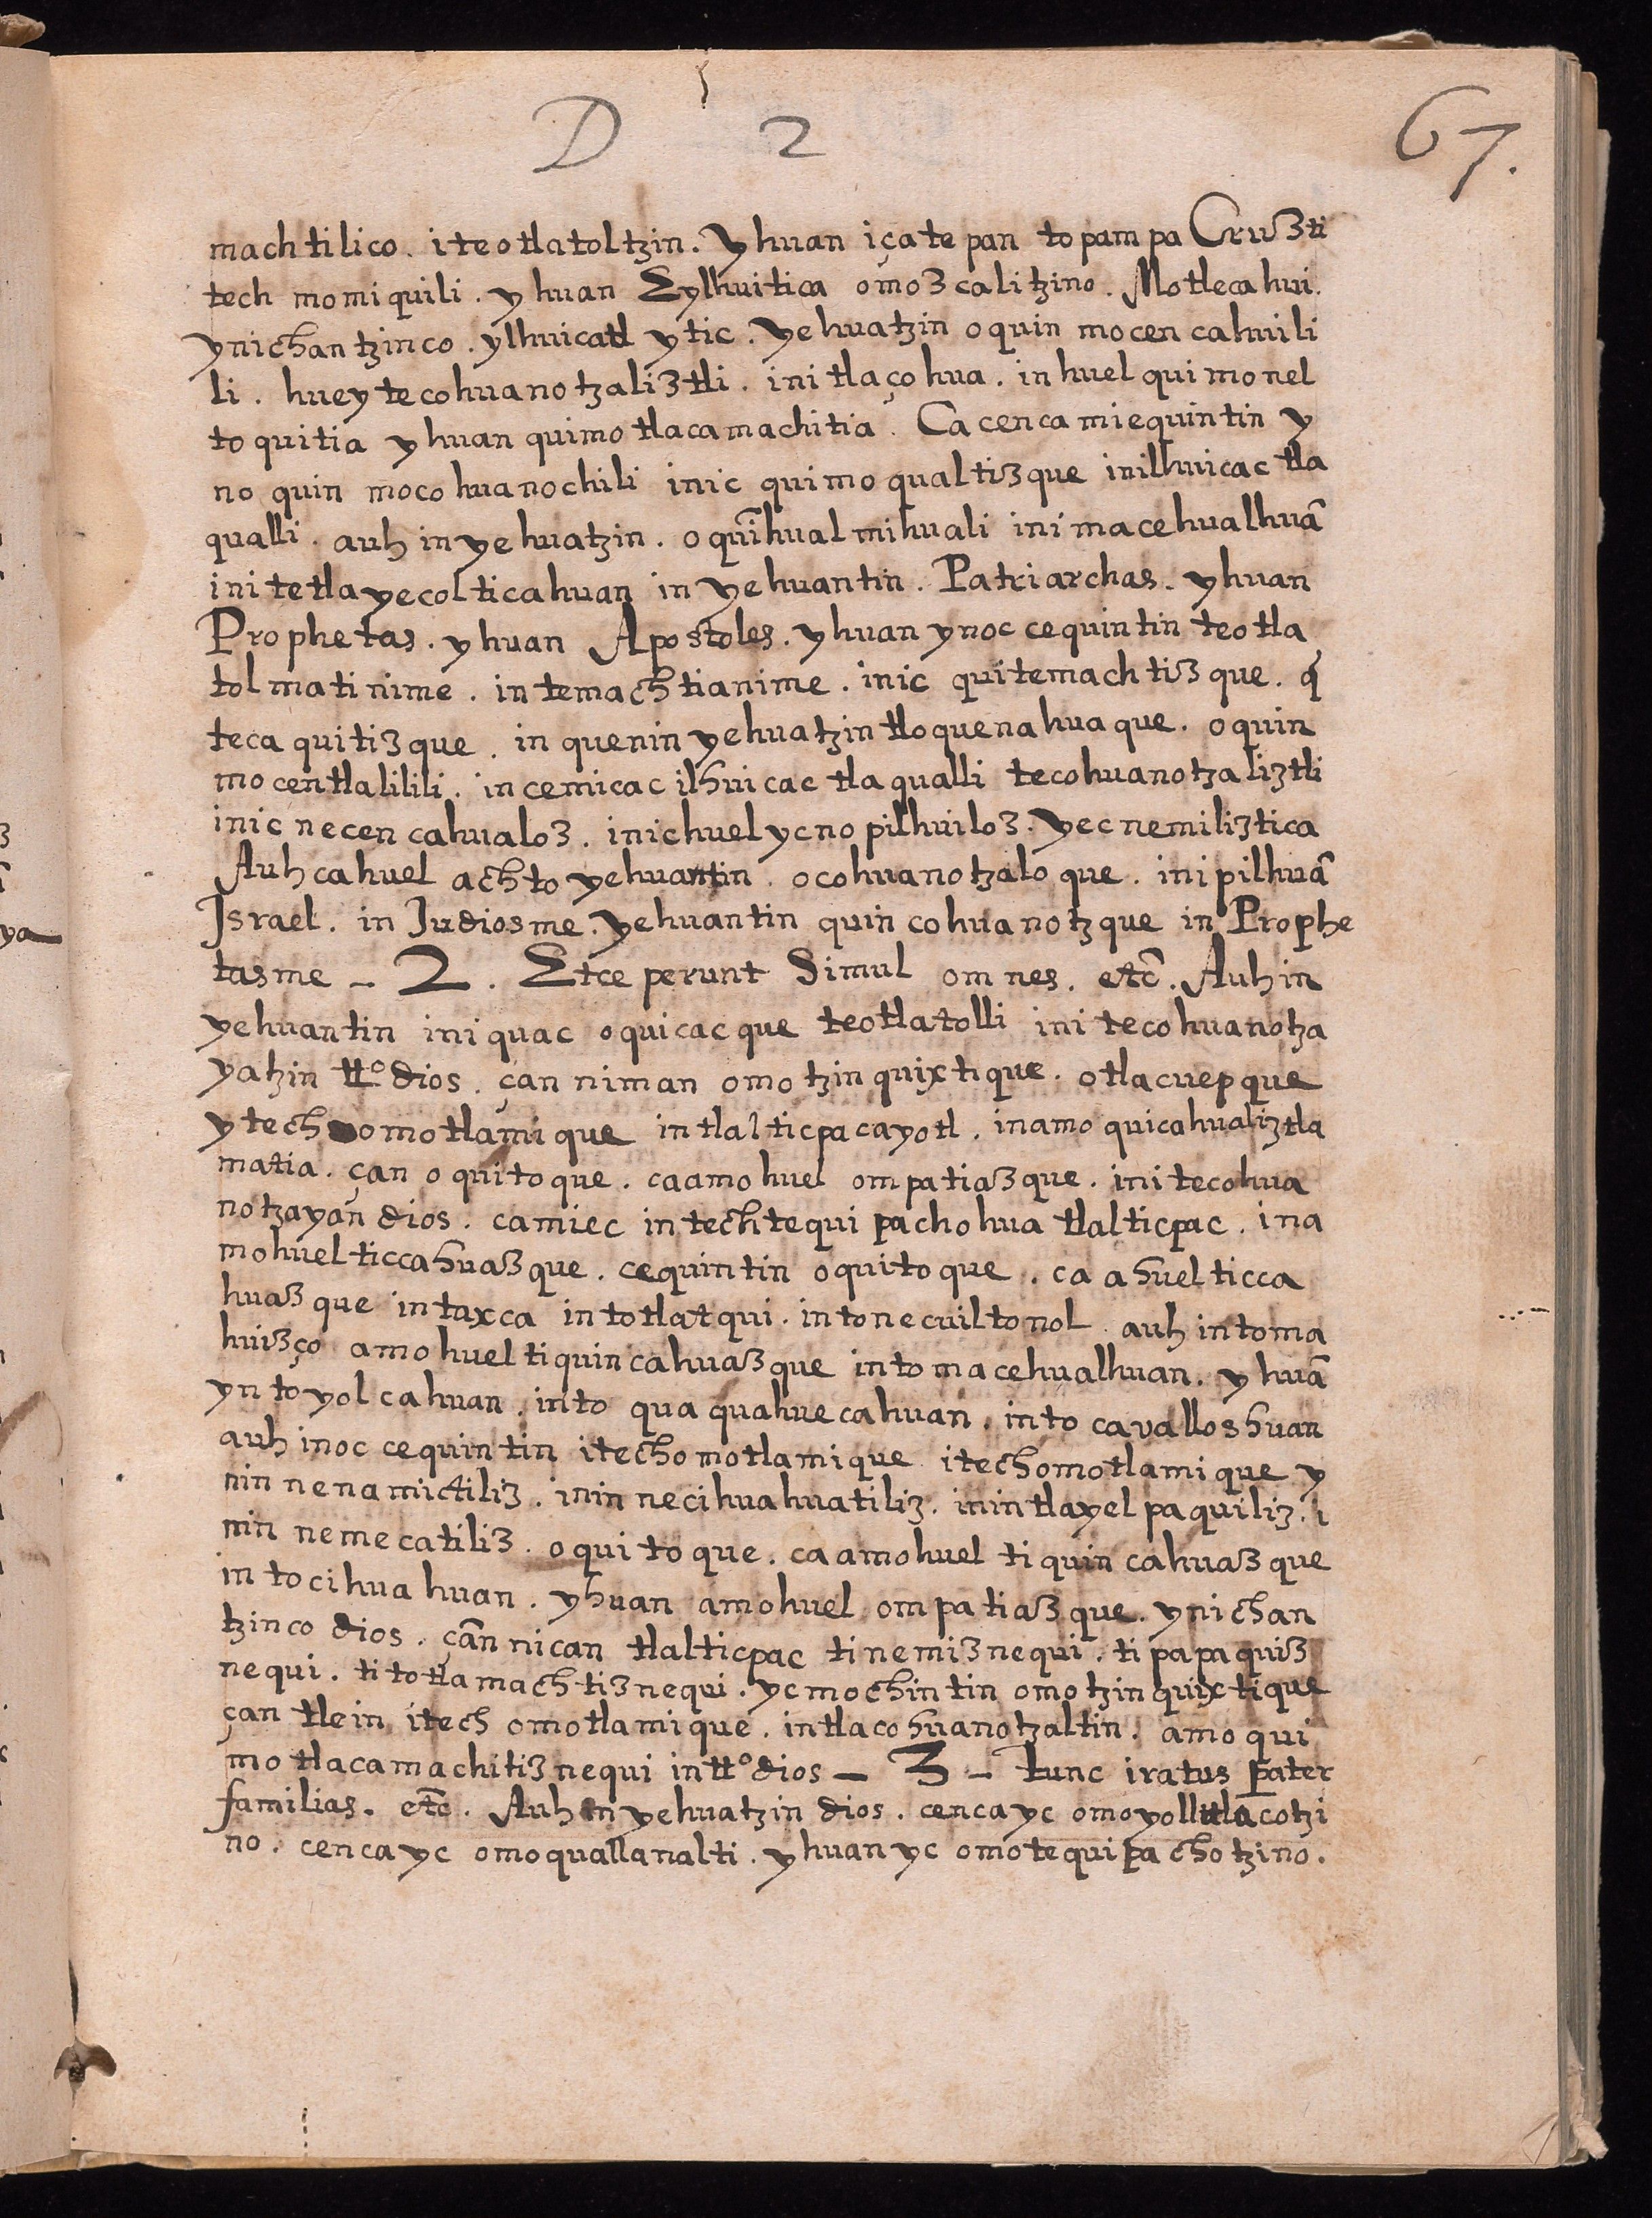 D 2 67.
machtilico. iteotlatoltzin. Yhuan içatepan topampa Cruzti
tech momiquili. yhuan Eylhuitica omozcalitzino. Motlecahui.
ynichantzinco. ylhuicatl ytic. Yehuatzin oquin mocencahuili
li. huey tecohuanotzaliztli. initlaçohua. in huel quimonel
toquitia yhuan quimotlacamachitia. Ca cenca miequintin y
no quin mocohuanochili inic quimoqualtizque inilhuicac tla
qualli. auh in yehuatzin. oquīhualmihuali inimacehualhuā
initetlayecolticahuan in yehuantin. Patriarchas. yhuan
Prophetas. yhuan Apostoles. yhuan ynoc cequintin teotla
tolmatinime. in temachtianime. inic quitemachtizque. q̄
tecaquitizque. in quenin yehuatzin tloquenahuaque. oquin
mocentlalilili. in cemicac ilhuicac tlaqualli tecohuanotzaliztli
inic necencahualoz. inic huel ycnopilhuiloz. yecnemiliztica
Auh ca huel achto yehuantin. ocohuanotzaloque. inipilhuā
Israel. in Judiosme. yehuantin quin cohuanotzque in Prophe
tasme - 2. Etceperunt Simul omnes. etc̄. Auh in
yehuantin iniquac oquicacque teotlatolli initecohuanotza
yatzin tt.º dios. çan niman omotzinquixtique. otlacuepque
ytech omotlamique in tlalticpacayotl. inamo quicahualiztla
matia. çan oquitoque. ca amo huel ompatiazque. initecohua
notzayan dios. ca miec in techtequipachohua tlalticpac. ina
mohuel ticcahuazque. cequintin oquitoque. ca ahuel ticca
huazque intaxca intotlatqui. intonecuiltonol. auh intoma
huizço amohuel tiquincahuazque intomacehualhuan. yhuā
yntoyolcahuan. into quaquahuecahuan. into cavalloshuan
auh inoc cequintin itech omotlamique itech omotlamique y
nin nenamictiliz. inin necihuahuatiliz. inintlayelpaquiliz. i
nin nemecatiliz. oquitoque. ca amohuel tiquincahuazque
intocihuahuan. yhuan amohuel ompatiazque. ynichan
tzinco dios. çan nican tlalticpac tinemiznequi. tipapaquiz
nequi. titotlamachtiznequi. yc mochintin omotzinquixtique
çan tlein itech omotlamique. intlacohuanotzaltin. amo qui
motlacamachitiznequi in tt.º dios - 3 - Tunc iratus pater
familias. etc̄. Auh in yehuatzin dios. cenca yc omoyollitlacotzi
no. cenca yc omoquallanalti. yhuan yc omotequipachotzino.
ya